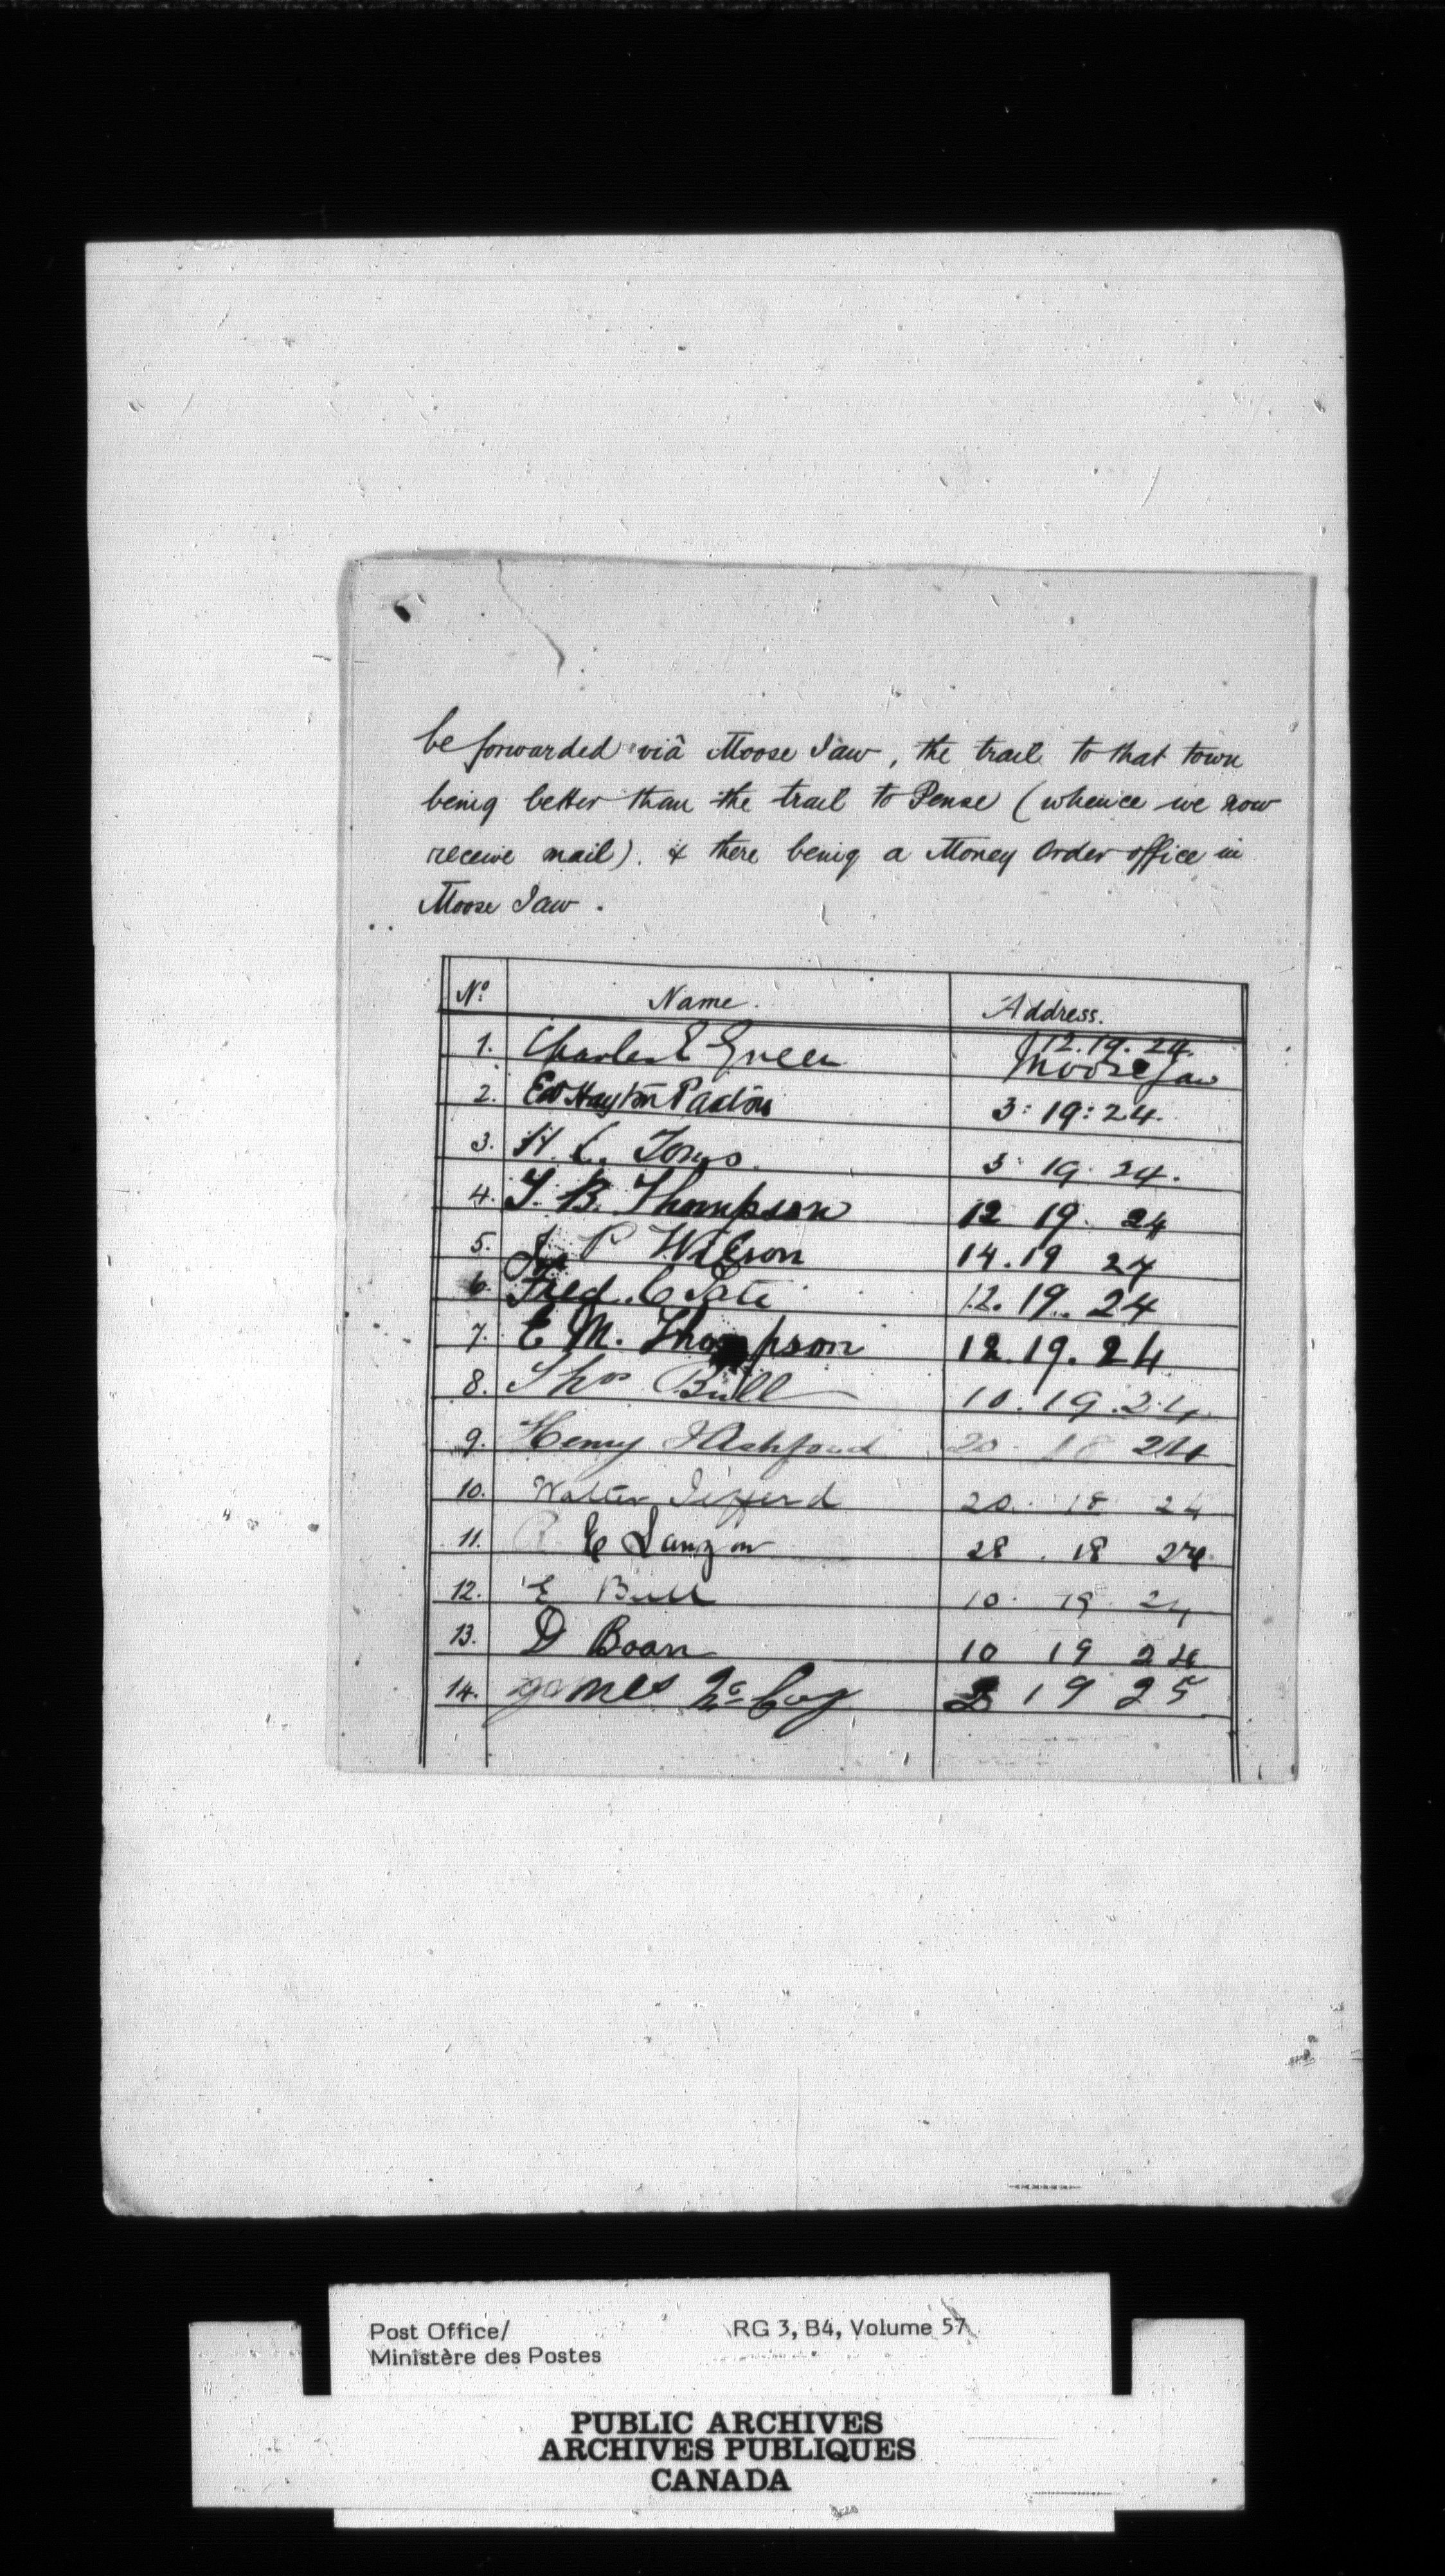 be forwarded viâ Moose Jaw, the trail to that town
being better than the trail to Pense (whence we now
receive mail). & there being a Money Order office in
Moose Jaw.
No. Name. Address.
1. Charles E Green 12.19.24. Moose Jaw
2. Ed Hayton 3:19:24.
3. H. C. 3 19. 24.
4. T. B. Thompson 12 19. 24
5. P Wilson 14.19 24
6. Fred. C 12.19.24
7. E M. Thompson 12.19.24
8. Thos Bull 10.19.24
9. Henry J Ashford 20 18 24
10. Walter 20. 18 24
11. E 28. 18 24
12. E Bull 10. 19. 24
13. D Boan 10 19 24
14. James McCoy 2 19 25
Post Office/ RG 3, B4, Volume 57
Ministère des Postes
PUBLIC ARCHIVES
ARCHIVES PUBLIQUES
CANADA